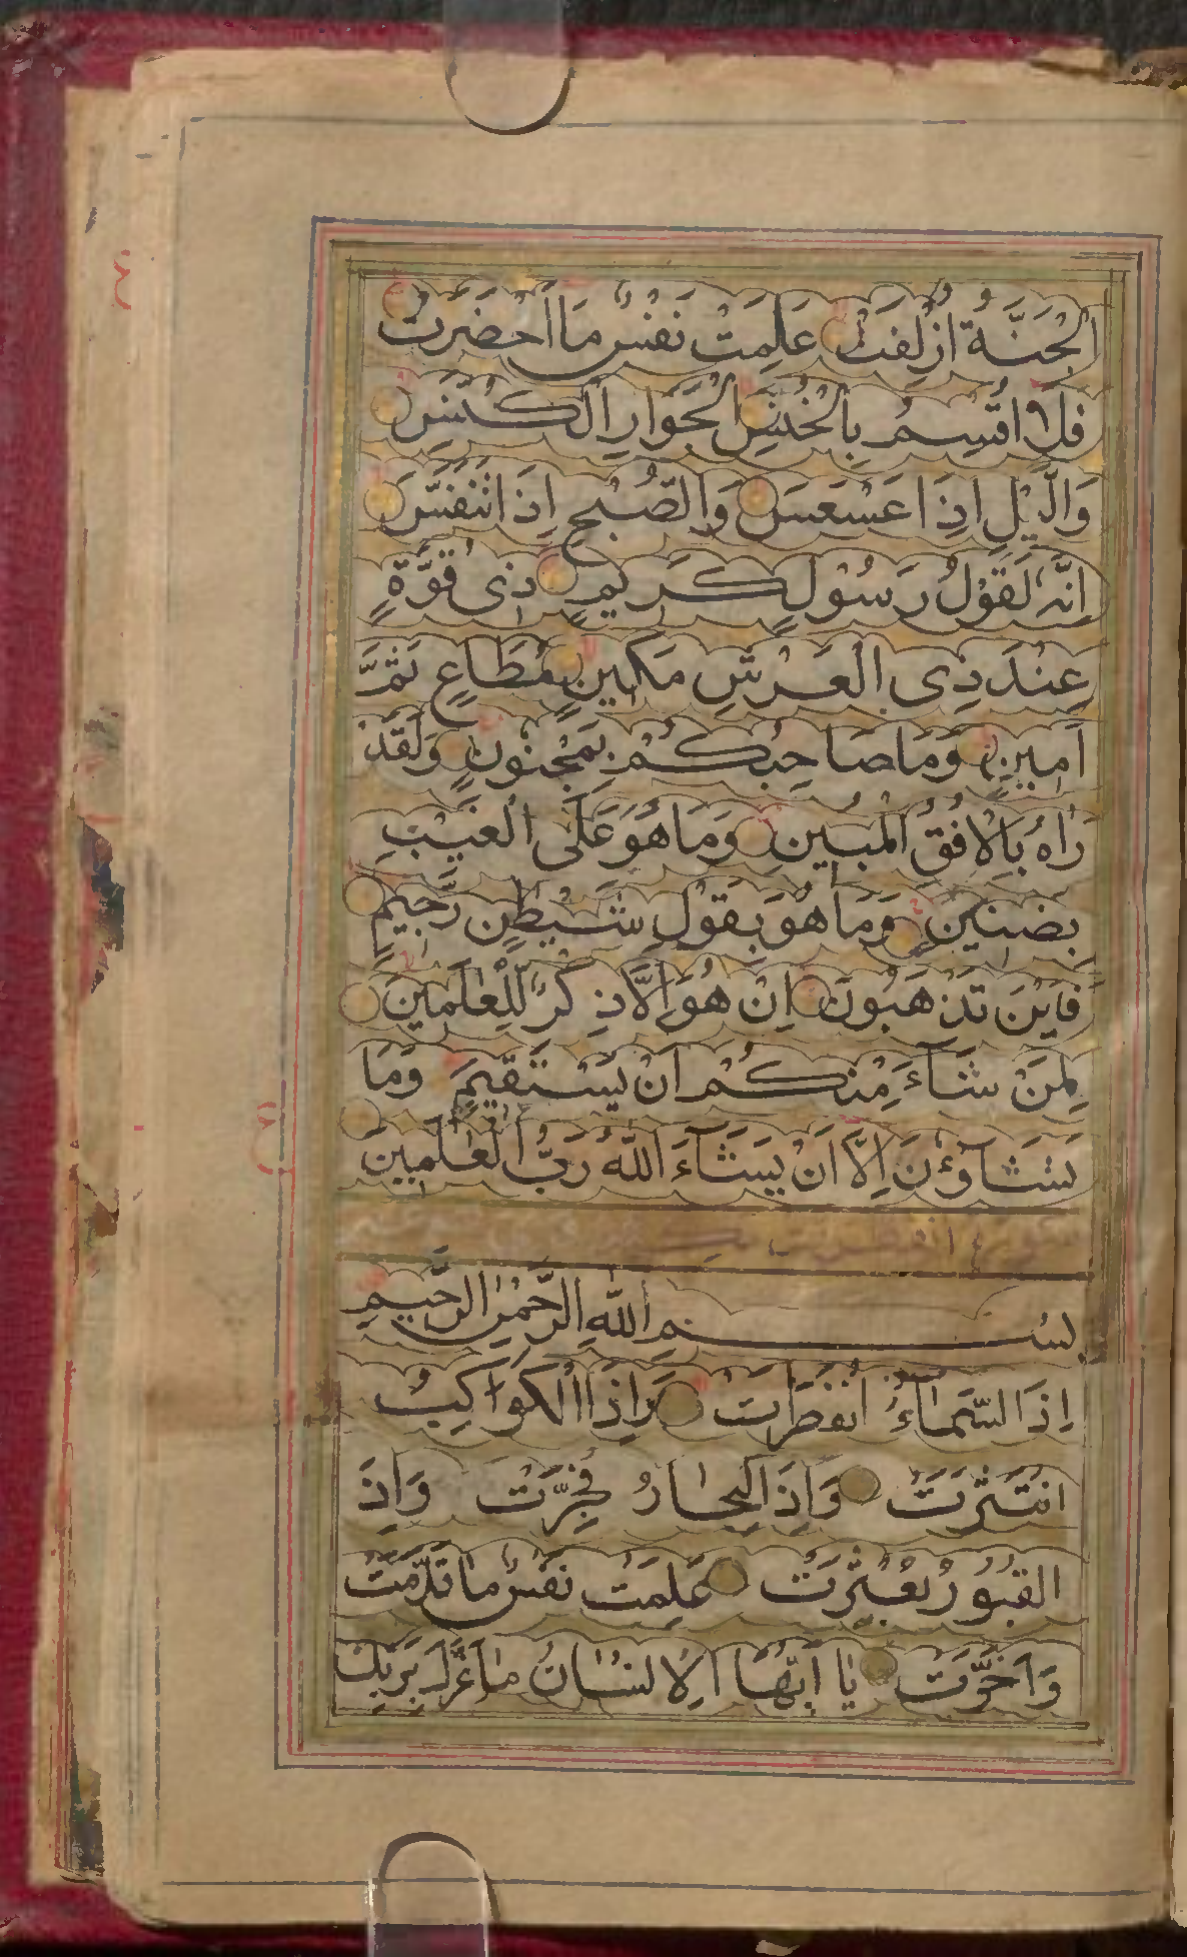 الْجَنَّةُ اُزْلِفَتْ عَلِمَتْ نَفْسٌ مَا اَحْضَرَتْ
فَلَا اُقْسِمُ بِالْخُنَّسِ الْجَوَارِ الْكُنَّسِ
وَالَّيْلِ اِذَا عَسْعَسَ وَالصُّبْحِ اِذَا تَنَفَّسَ
اِنَّهُ لَقَوْلُ رَسُوْلٍ كَرِيمٍ ذِى قُوَّةٍ
عِنْدَ ذِى الْعَرْشِ مَكِينٍ مُطَاعٍ ثَمَّ
اَمِينٍ وَمَا صَاحِبُكُمْ بِمَجْنُونٍ وَلَقَدْ
رَاٰهُ بِالْاُفُقِ الْمُبِينِ وَمَا هُوَ عَلَى الْغَيْبِ
بِضَنِينٍ وَمَا هُوَ بِقَوْلِ شَيْطٰنٍ رَّجِيمٍ
فَاَيْنَ تَذْهَبُونَ اِنْ هُوَ اِلَّا ذِكْرٌ لِلْعٰلَمِينَ
لِمَنْ شَآءَ مِنْكُمْ اَنْ يَسْتَقِيمَ وَمَا
تَشَآؤُنَ اِلَّا اَنْ يَشَآءَ اللّٰهُ رَبُّ الْعٰلَمِينَ
بِسْمِ اللّٰهِ الرَّحْمٰنِ الرَّحِيمِ
اِذَا السَّمَاءُ انْفَطَرَتْ وَاِذَا الْكَوَاكِبُ
انْتَثَرَتْ وَاِذَا الْبِحَارُ فُجِّرَتْ وَاِذَ
الْقُبُورُ بُعْثِرَتْ عَلِمَتْ نَفْسٌ مَا قَدَّمَتْ
وَاَخَّرَتْ يَا اَيُّهَا الْاِنْسَانُ مَا غَرَّكَ بِرَبِّكَ
ع
ع